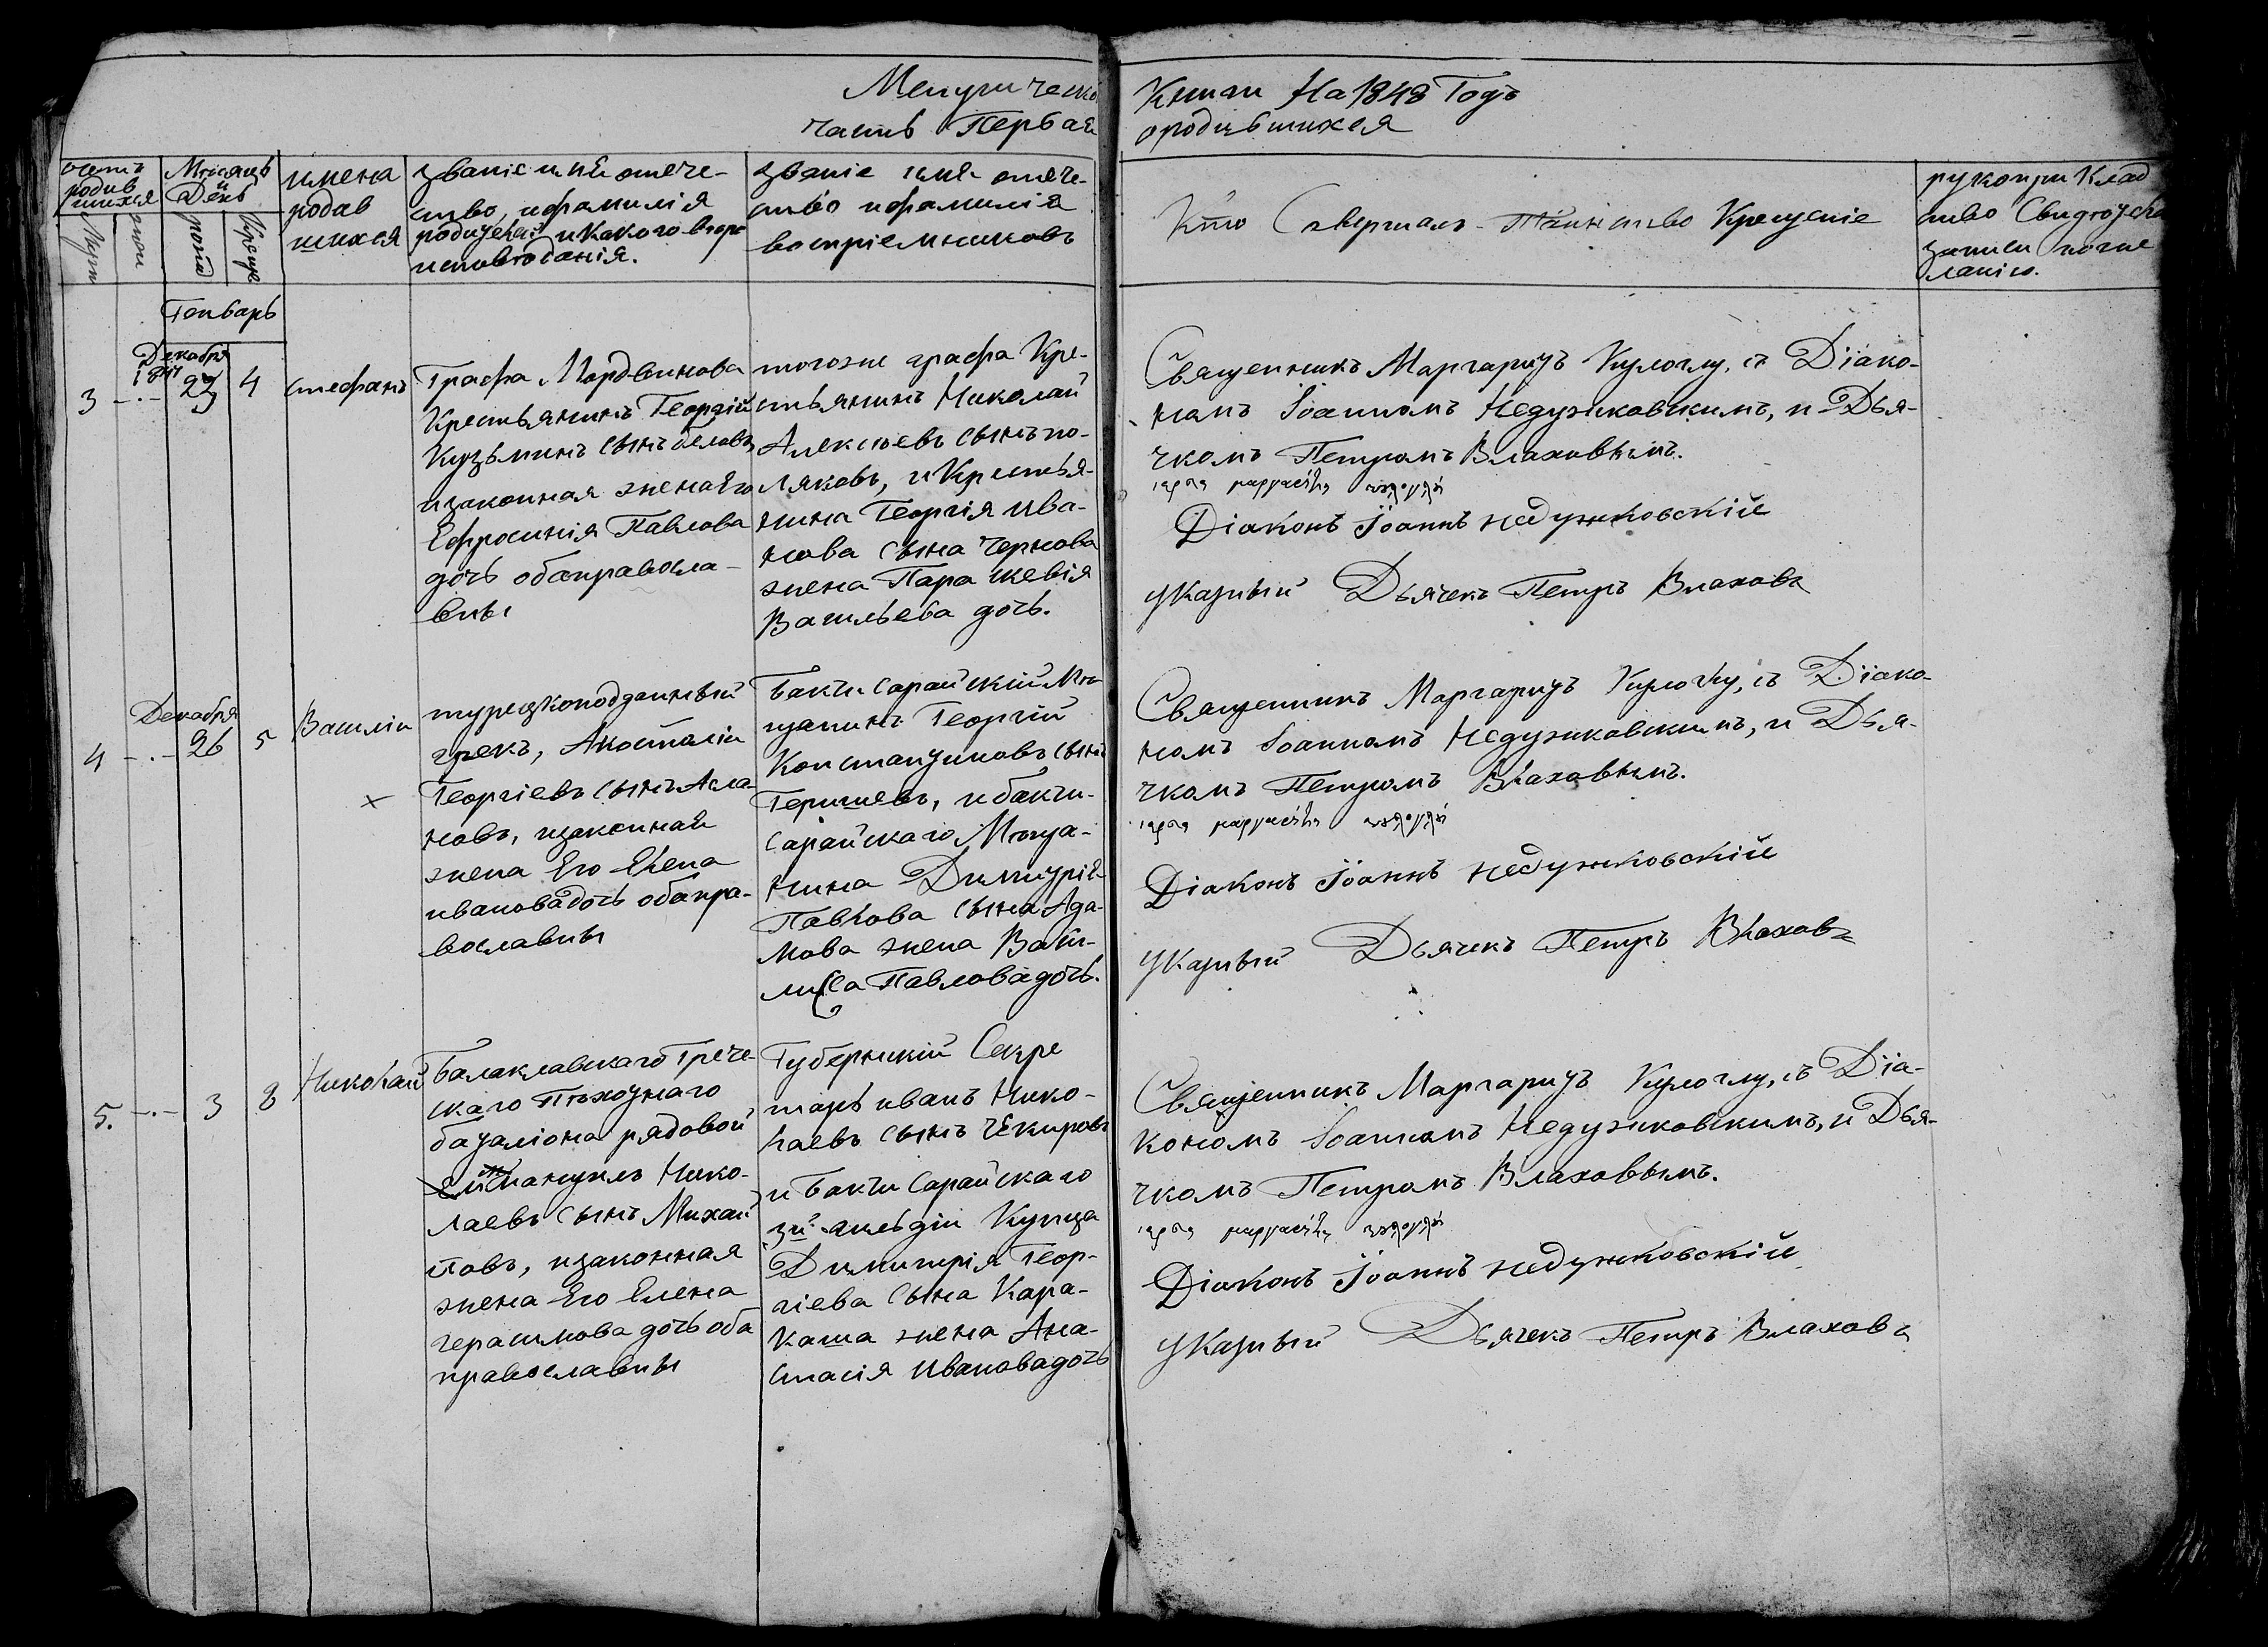 Метрической Книги На 1848 Годъ
часть Первая
о родившихся
счетъ родив шихся
Мѣсяцъ и День
имена родив шихся
званіе имя отече-
ство, и фамилія
родителей и какого вѣро
исповѣданія.
званіе имя отече-
ство и фамилія
воспріемниковъ
Кто Совершалъ Таинство Крещеніе
рукоприклад
ство Свидѣтеле
записи по же
ланію.
Генварь
3
Декабря
1847
29
4
стефанъ
Графа Мордвинова
Крестьянинъ Георгій
Кузьминъ сынъ беловъ
и законная жена Его
Ефросинія Павлова
дочь оба правосла-
вны
тогоже графа Кре-
стьянинъ Николай
Алексѣевъ сынъ по-
ляковъ, и Крестья-
нина Георгія ива-
нова сына чернова
жена Параскевія
Васильева дочь.
Священникъ Маргаритъ Кулоглу, съ Діако-
номъ Іоанномъ Недужковскимъ, и Дья-
чкомъ Петромъ Влаховымъ.
Діаконъ Іоаннъ недужковскій
указный Дьячекъ Петръ Влаховъ
4
Декабря
26
5
Василій
турецкоподданный
грекъ, Апостолій
Георгіевъ сынъ Асла-
новъ, и законная
жена Его Елена
иванова дочь оба пра-
вославны
Бакчисарайскій Мѣ-
щанинъ Георгій
Константиновъ сынъ
и бакчи-
сарайскаго Мѣща-
нина Димитрія
Павлова сына Ада-
мова жена Васи-
лиса Павлова дочь.
Священникъ Маргаритъ Кулоглу, съ Діако-
номъ Іоанномъ Недужковскимъ, и Дья-
чкомъ Петромъ Влаховымъ.
Діаконъ Іоаннъ недужковскій
указный Дьячекъ Петръ Влаховъ
5.
3
8
Николай
Балаклавскаго Грече-
скаго Пѣхотнаго
баталіона рядовой
Нико-
лаевъ сынъ Михай
ловъ, и законная
жена Его Елена
герасимова дочь оба
православны
Губернскій Секре
тарь иванъ Нико-
лаевъ сынъ Чекировъ
и Бакчисарайскаго
3й гильдіи Купца
Димитрія Геор-
гіева Сына Кара-
каша жена Ана-
стасія Иванова дочь
Священникъ Маргаритъ Кулоглу, съ Діа-
кономъ Іоанномъ Недужковскимъ, и Дья-
чкомъ Петромъ Влаховымъ.
Діаконъ Іоаннъ недужковскій
указный Дьячекъ Петръ Влаховъ